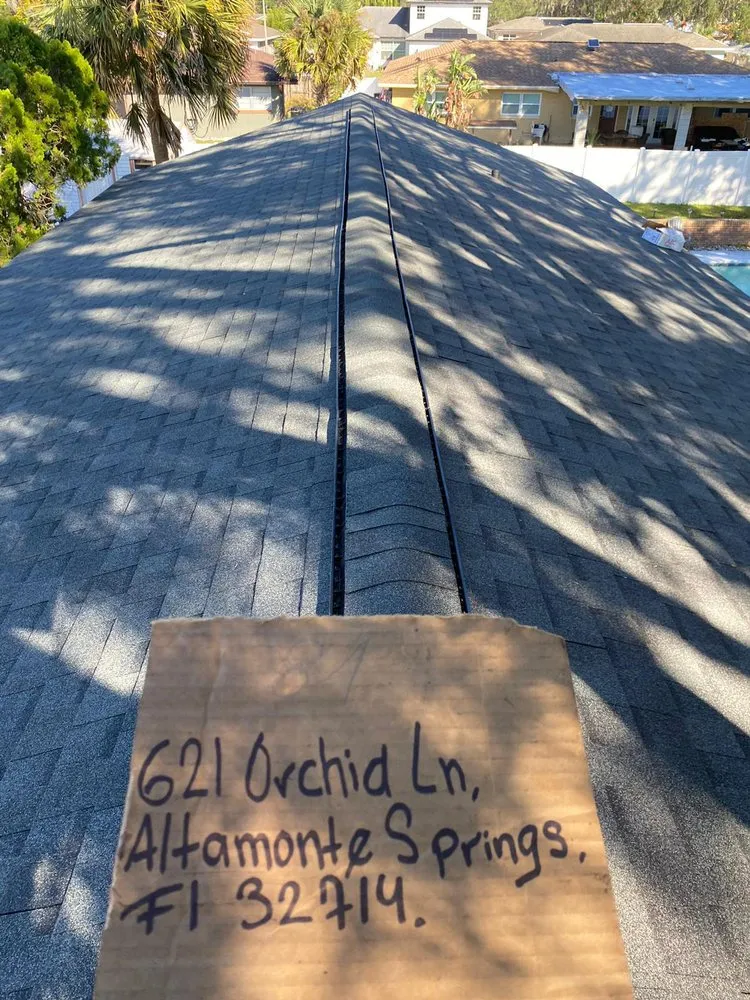 621 Orchid Ln,
Altamonte Springs.
Fl 32714.